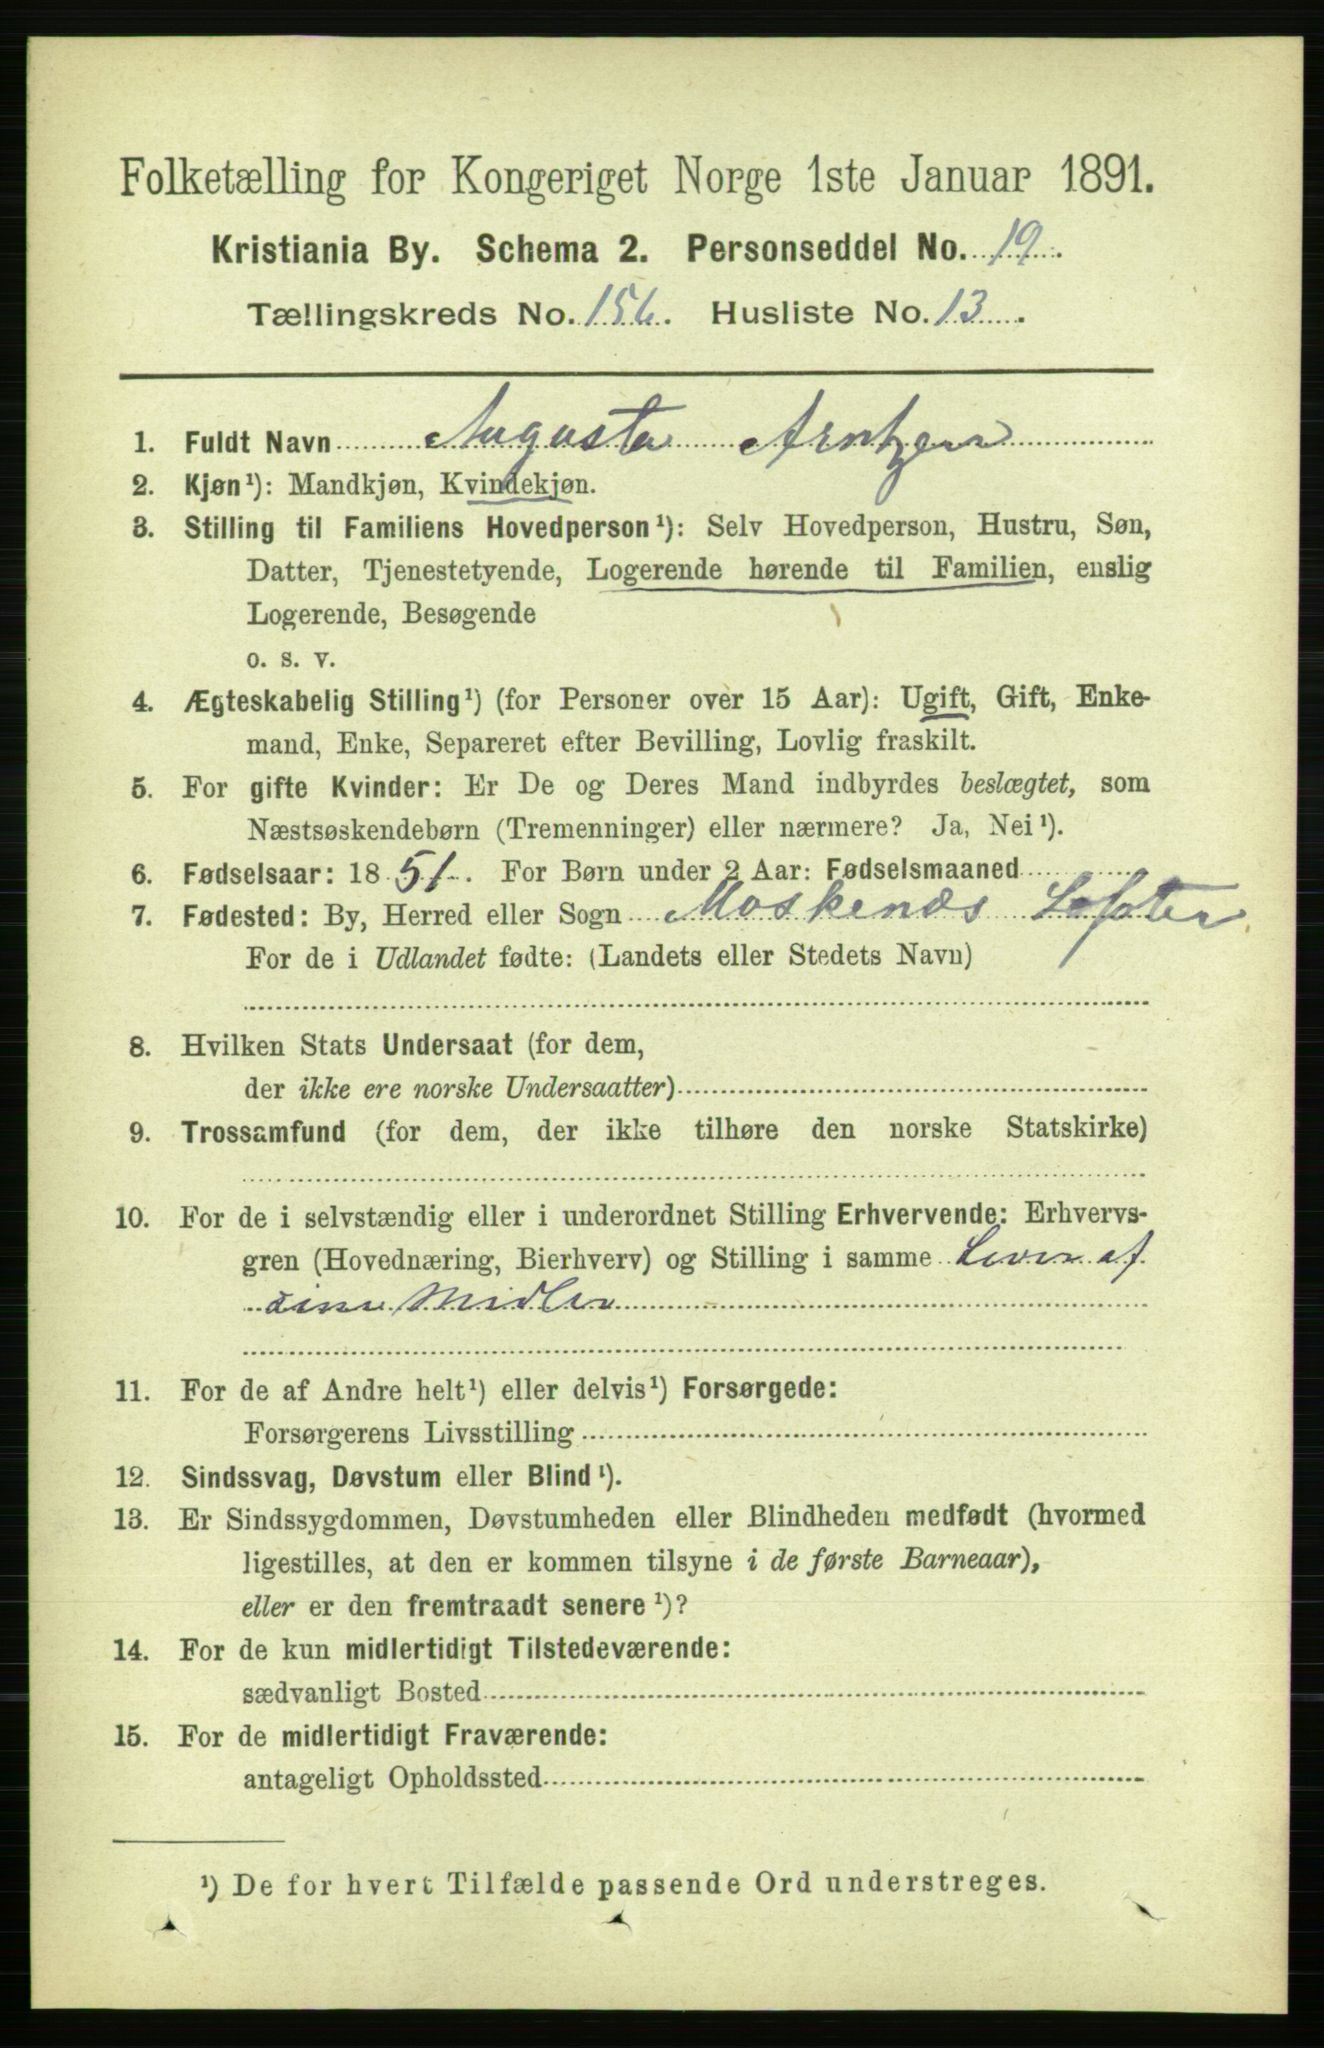 Folketælling for Kongeriget Norge 1ste Januar 1891.
Kristiania By. Schema 2. Personseddel No. 19.
Tællingskreds No. 156. Husliste No. 13.
1. Fuldt Navn Augusta Arntzen
2. Kjøn¹): Mandkjøn, Kvindekjøn.
3. Stilling til Familiens Hovedperson¹): Selv Hovedperson, Hustru, Søn,
Datter, Tjenestetyende, Logerende hørende til Familien, enslig
Logerende, Besøgende
o. s. v.
4. Ægteskabelig Stilling¹) (for Personer over 15 Aar): Ugift, Gift, Enke-
mand, Enke, Separeret efter Bevilling, Lovlig fraskilt.
5. For gifte Kvinder: Er De og Deres Mand indbyrdes beslægtet, som
Næstsøskendebørn (Tremenninger) eller nærmere? Ja, Nei¹).
6. Fødselsaar: 1851. For Børn under 2 Aar: Fødselsmaaned
7. Fødested: By, Herred eller Sogn Moskenæs Lofoten
For de i Udlandet fødte: (Landets eller Stedets Navn)
8. Hvilken Stats Undersaat (for dem,
der ikke ere norske Undersaatter)
9. Trossamfund (for dem, der ikke tilhøre den norske Statskirke)
10. For de i selvstændig eller i underordnet Stilling Erhvervende: Erhvervs-
gren (Hovednæring, Bierhverv) og Stilling i samme Lever af
sine Midler
11. For de af Andre helt¹) eller delvis¹) Forsørgede:
Forsørgerens Livsstilling
12. Sindssvag, Døvstum eller Blind¹).
13. Er Sindssygdommen, Døvstumheden eller Blindheden medfødt (hvormed
ligestilles, at den er kommen tilsyne i de første Barneaar),
eller er den fremtraadt senere¹)?
14. For de kun midlertidigt Tilstedeværende:
sædvanligt Bosted
15. For de midlertidigt Fraværende:
antageligt Opholdssted
¹) De for hvert Tilfælde passende Ord understreges.